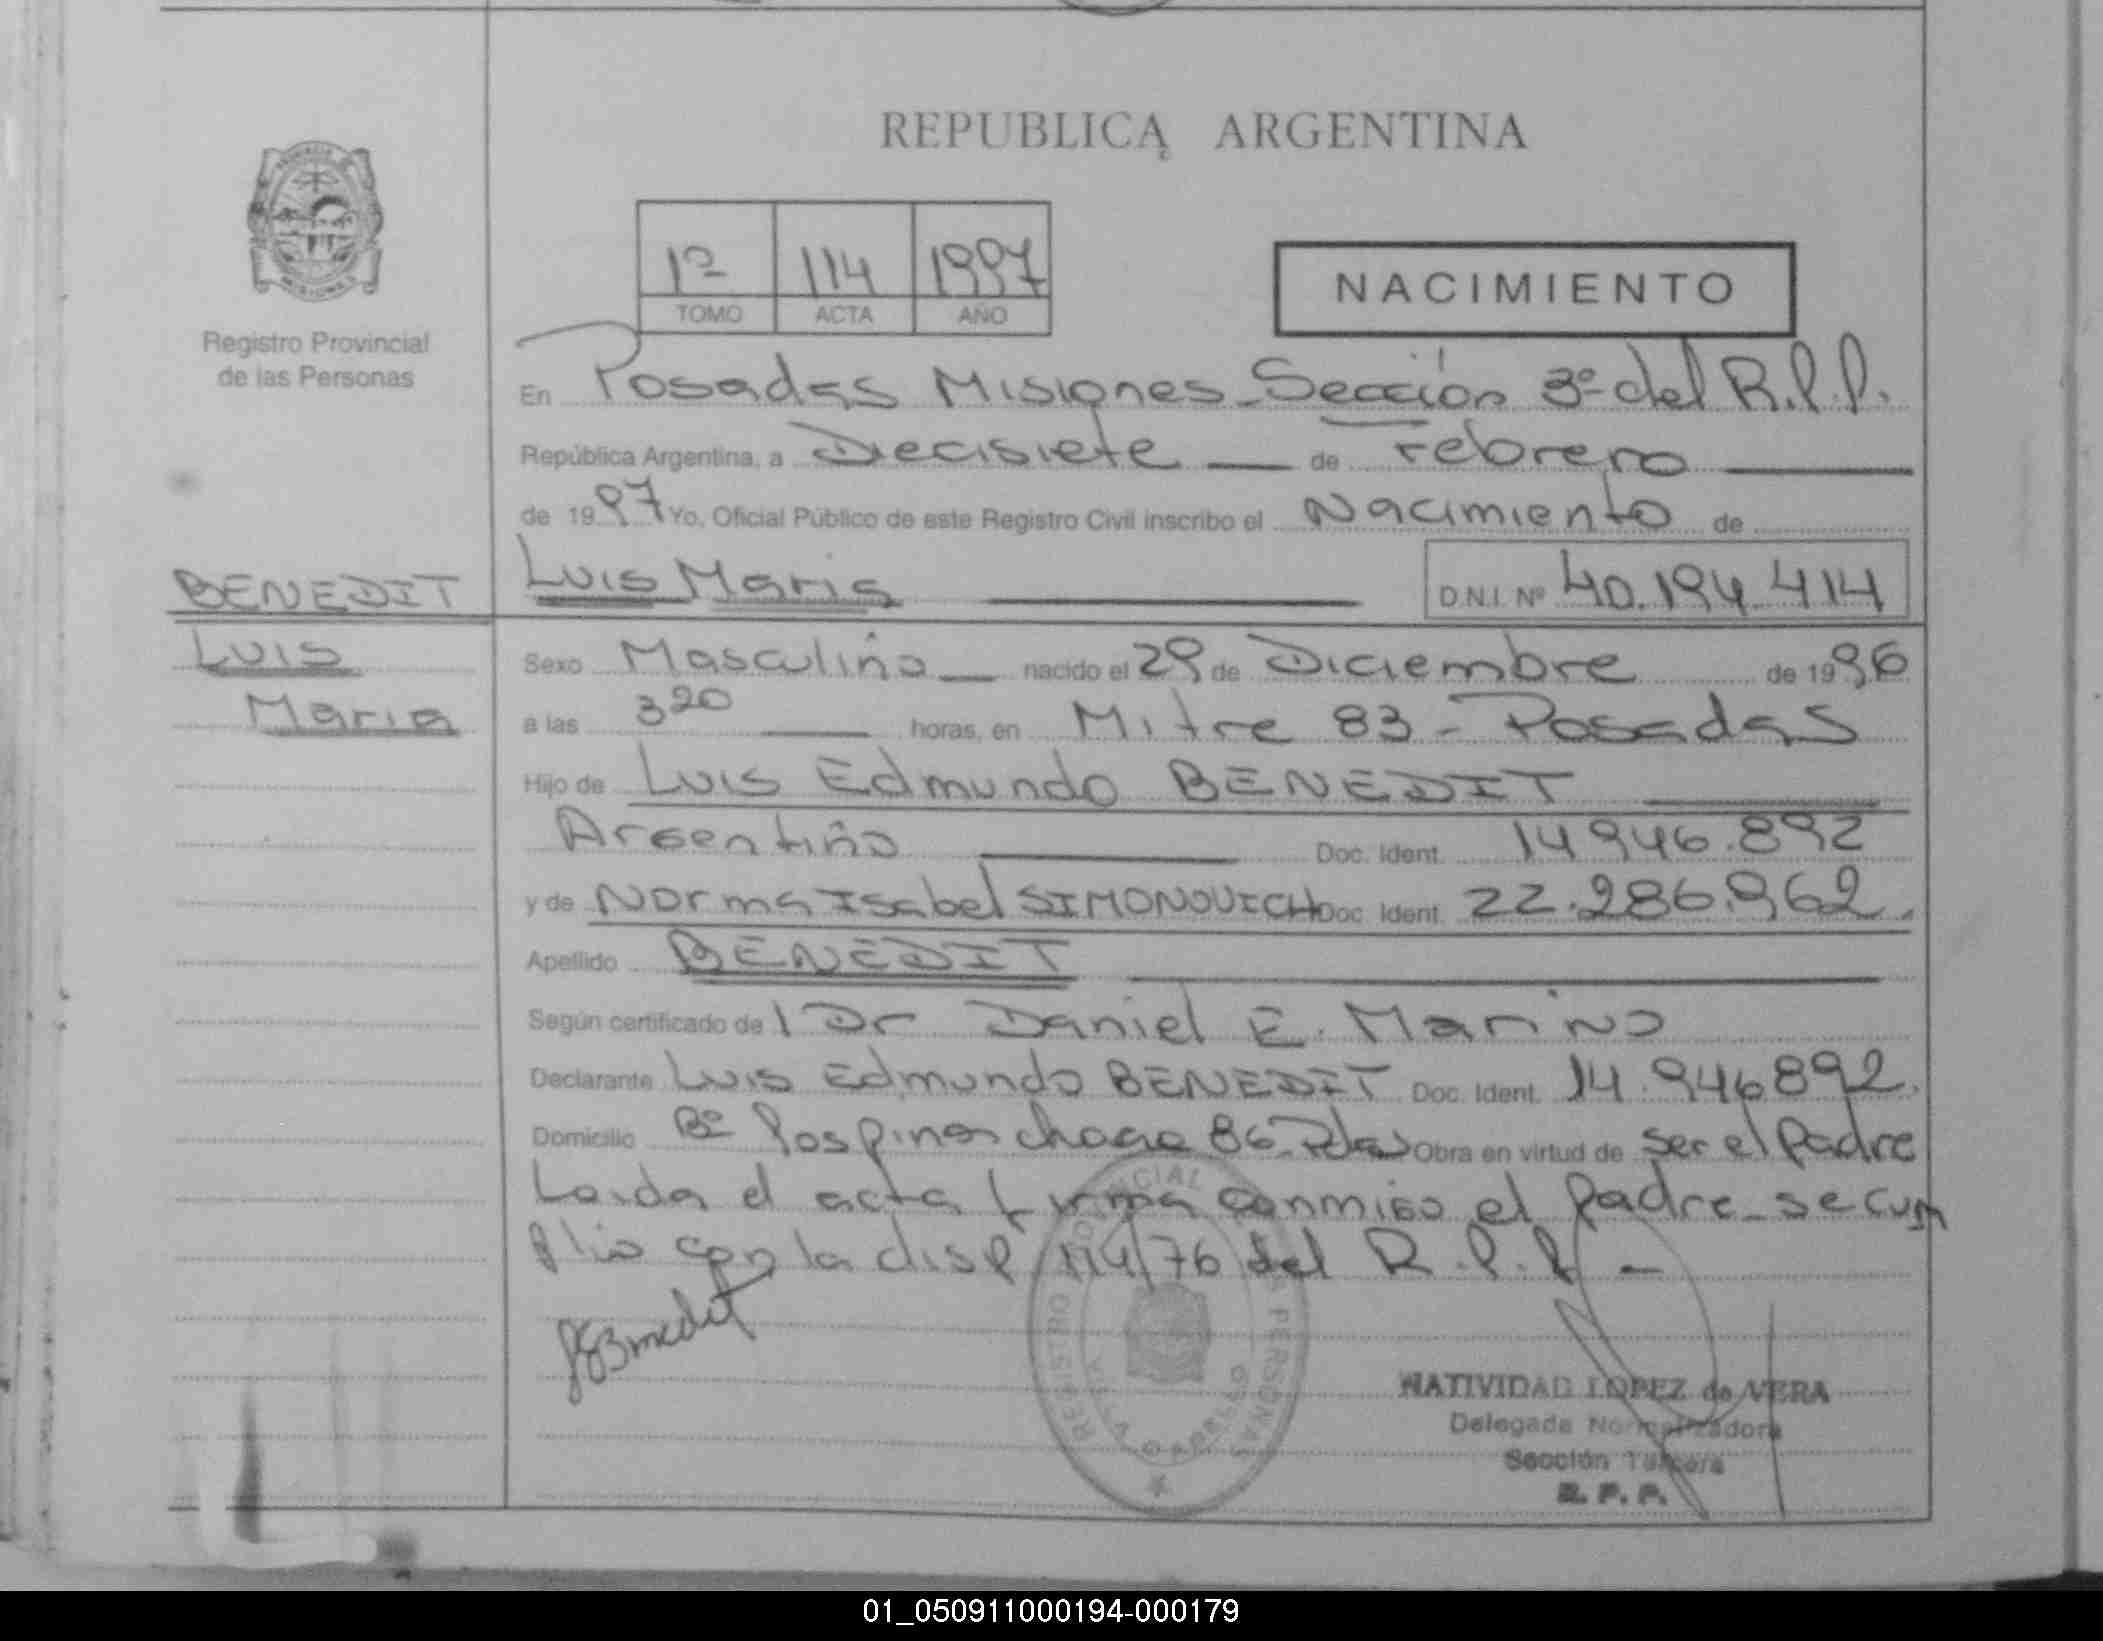 REPUBLICA ARGENTINA
1º 114 1997
TOMO ACTA AÑO
NACIMIENTO
Registro Provincial
de las Personas
En Posadas Misiones - Sección 3º del R.P.P.
República Argentina, a Diecisiete de Febrero
de 1997 Yo, Oficial Público de este Registro Civil inscribo el Nacimiento de
BENEDIT
Luis
Maria
Luis Maria D.N.I. Nº 40.194.414
Sexo Masculino nacido el 29 de Diciembre de 1996
a las 3 20 horas, en Mitre 83 - Posadas
Hijo de Luis Edmundo BENEDIT
Argentino Doc. Ident. 14946.892
y de Norma Isabel SIMONOVICH Doc. Ident. 22.286.962.
Apellido BENEDIT
Según certificado de l Dr Daniel E. Marino
Declarante Luis Edmundo BENEDIT Doc. Ident. 14.946892.
Domicilio Bº Los pinos chacra 86 Pdas Obra en virtud de ser el padre
Leida el acta firma conmigo el padre - se cum
plio con la disp 114/76 del R.P.P -
NATIVIDAD LOPEZ de VERA
Delegada Normalizadora
Sección Tercera
R. P. P.
REGISTRO PROVINCIAL PERSONAS
01_050911000194-000179